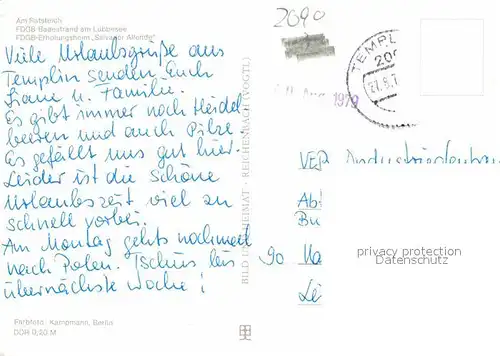 Am Fährseruh
FDGB-Badestrand am Lübbesee
FDGB-Erholungsheim „Salvador Allende"
Viele Urlaubsgrüße aus
Templin senden Euch
Liane u. Familie.
Es gibt immer noch Heidel
beeren und auch Pilze.
Es gefällt uns gut hier.
Leider ist die schöne
Urlaubszeit viel zu
schnell vorbei.
Am Montag gehts nochmal
nach Polen. Tschüß bis
übernächste Woche!
Farbfoto: Kampmann, Berlin
DDR 0,20 M
BILD HEIMAT · REICHENBACH (VOGTL)
2090
1979
TEMPL
209
27.8.7
VEB Industrie
Ab
Bu
90 Ka
Lei
privacy protection
Datenschutz